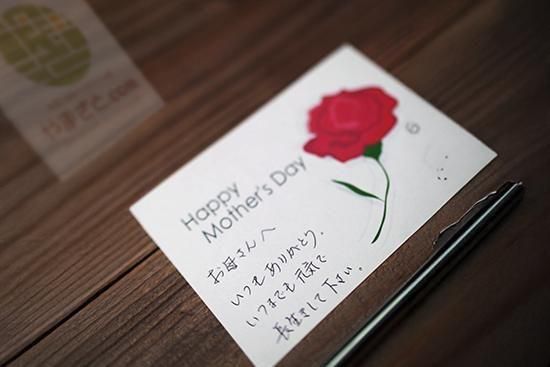 Happy
Mother's Day
お母さんへ
いつもありがとう。
いつまでも元気で
長生きして下さい。
やまざと.com